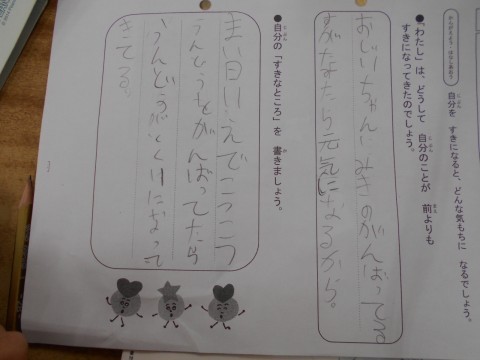 かんがえよう はなしあおう
自分を すきになると、どんな気もちに なるでしょう。
●「わたし」は、どうして 自分のことが 前よりも
すきになってきたのでしょう。
おじいちゃんにみきのがんばってる
すがたみたら元気になるから。
●自分の「すきなところ」を 書きましょう。
まい日いえでこつこつ
うんどうをがんばってたら
うんどうがとくいになって
きてる。